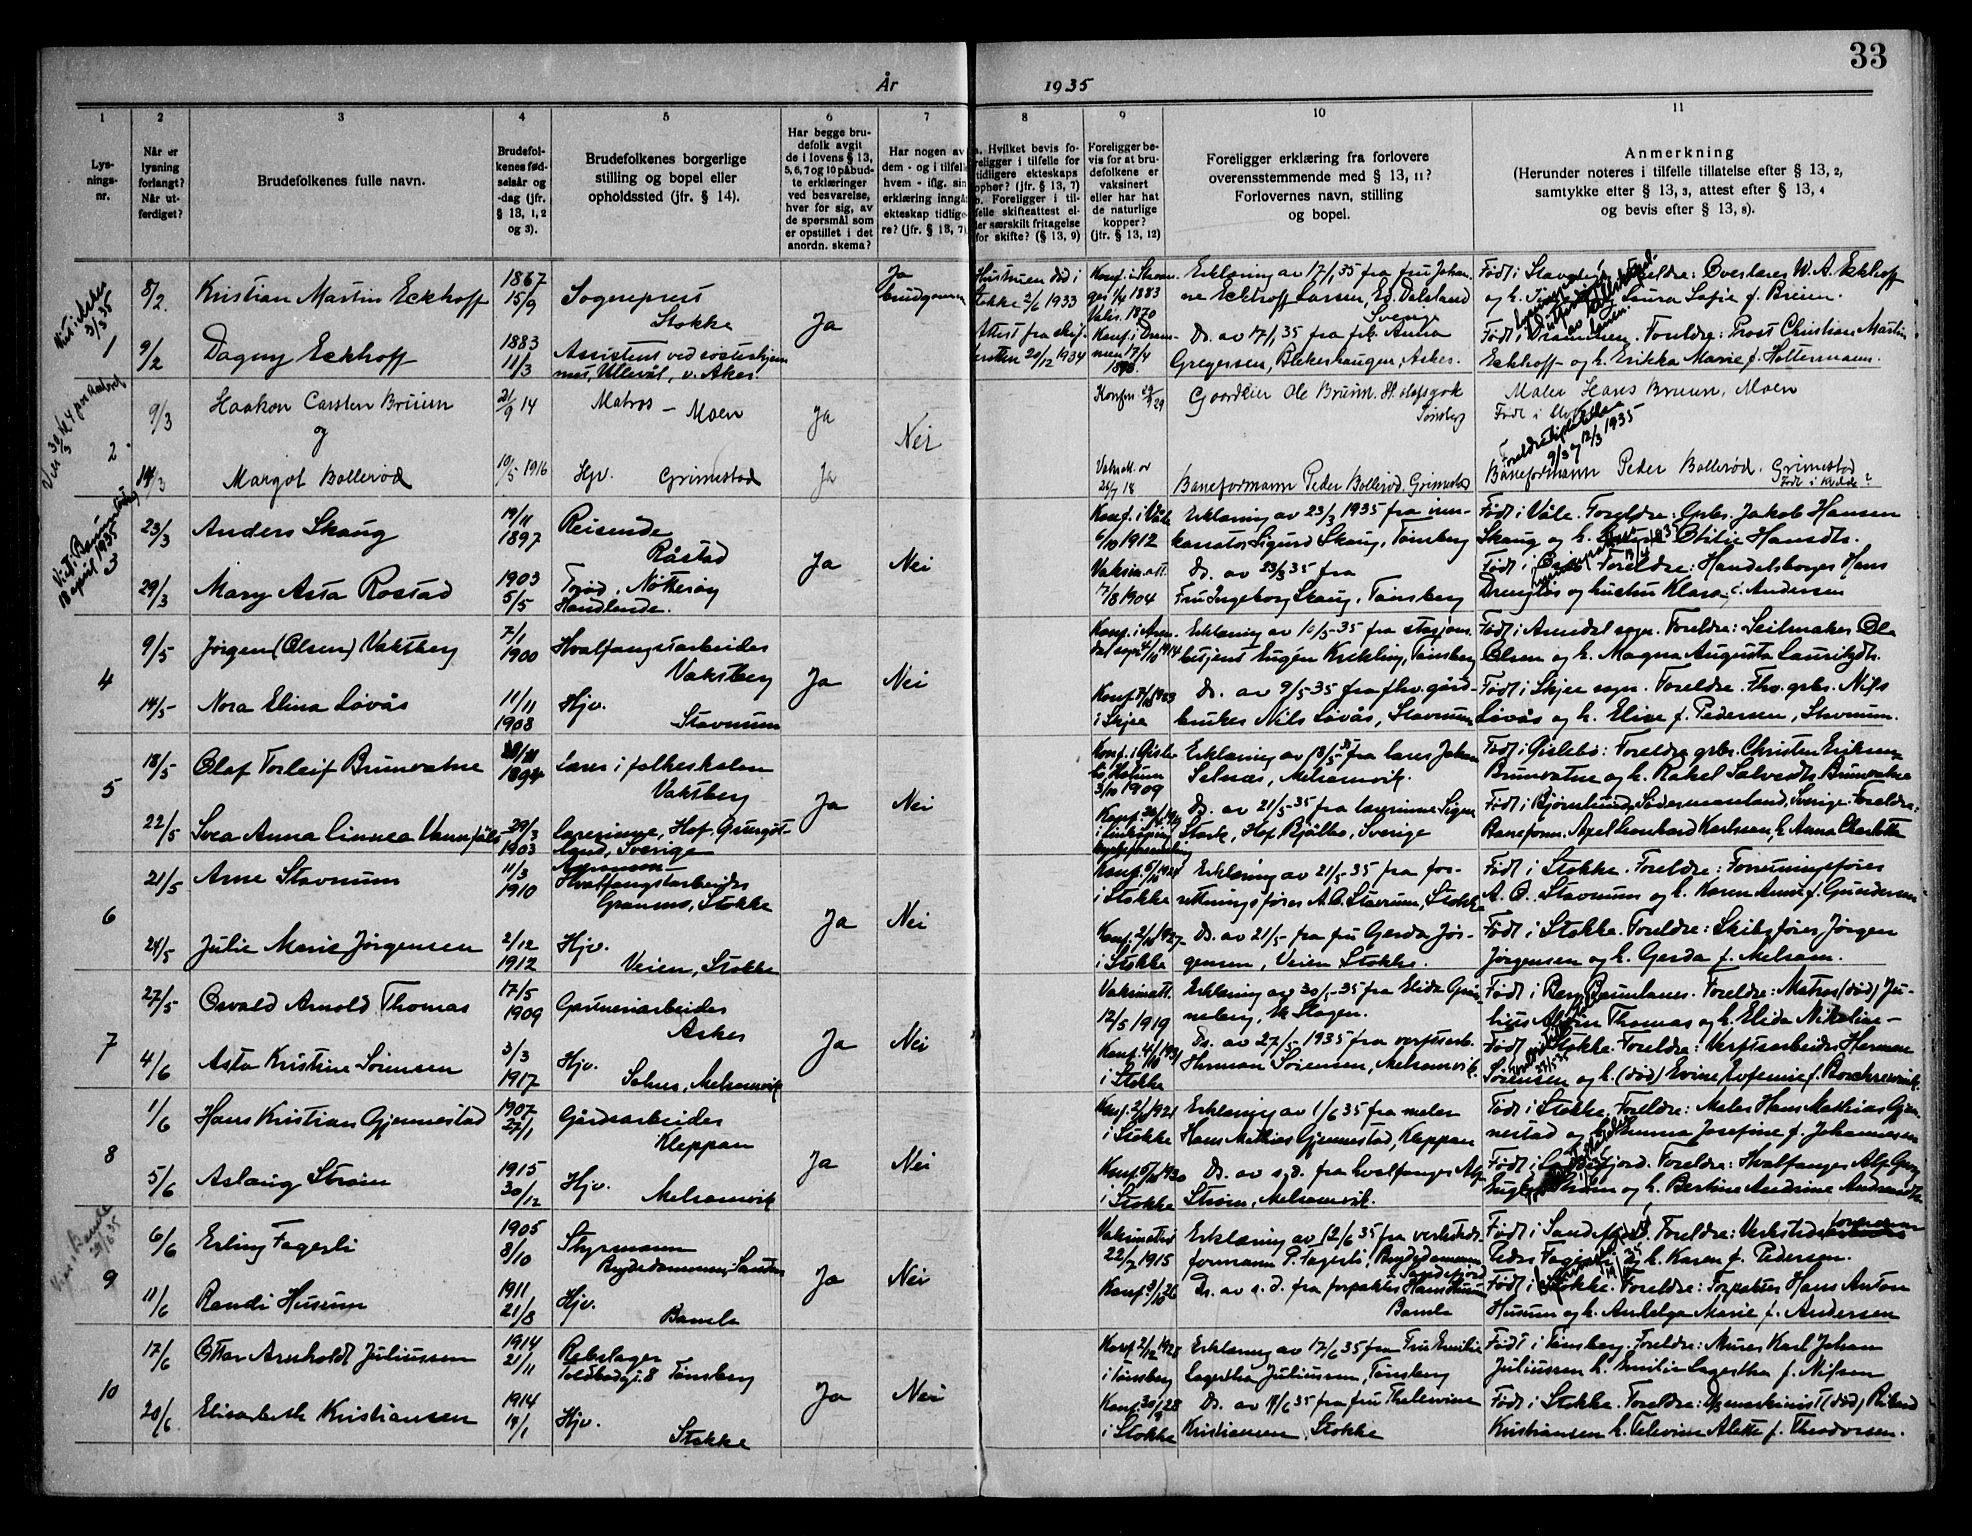 33
År 1935
1 2 3 4 5 6 7 8 9 10 11
Lys-
nings-
nr.
Når er
lysning
forlangt?
Når ut-
ferdiget?
Brudefolkenes fulle navn.
Brudefol-
kenes fød-
selsår og
-dag (jfr.
§ 13, 1, 2
og 3).
Brudefolkenes borgerlige
stilling og bopel eller
opholdssted (jfr. § 14).
Har begge bru-
defolk avgit
de i lovens § 13,
5, 6, 7 og 10 påbud-
te erklæringer
ved besvarelse,
hver for sig, av
de spørsmål som
er opstillet i det
anordn. skema?
Har nogen av
dem - og i tilfelle
hvem - iflg. sin
erklæring inngå
ekteskap tidlige-
re? (jfr. § 13, 7).
a. Hvilket bevis fo-
religger i tilfelle for
tidligere ekteskaps
ophør? (jfr. § 13, 7)
b. Foreligger i til-
felle skifteattest el-
ler særskilt fritagelse
for skifte? (§ 13, 9)
Foreligger be-
vis for at bru-
defolkene er
vaksinert
eller har hat
de naturlige
kopper?
(jfr. § 13, 12)
Foreligger erklæring fra forlovere
overensstemmende med § 13, 11?
Forlovernes navn, stilling
og bopel.
Anmerkning
(Herunder noteres i tilfelle tillatelse efter § 13, 2,
samtykke efter § 13, 3, attest efter § 13, 4
og bevis efter § 13, 8).
Viet i Asker
3/3 35
1
8/2 Kristian Martin Eckhoff
1867
15/9
Sogneprest
Stokke
Ja
Ja
brudgommen
Hustruen død i
Stokke 2/6 1933
Konf. i Stavan-
ger 1/4 1883
Vaks. 1870
Erklæring av 17/1 35 fra fru Johan-
ne Eckhoff Larsen, Ed. Dalsland
Sverige
Født i Stavanger. Foreldre: Overlærer W. A. Eckhoff
Laura Sofie f. Bruun.
9/2 Dagny Eckhoff
1883
11/3
Assistent ved søsterhjem
met, Ullevål, v. Aker.
Attest fra skif-
teretten 20/12 1934
Konf. i Dram-
men 17/4
Do. av 17/1 35 fra frk. Anna
Gregersen, Bekkerhaugen, Asker.
Født i Drammen. Foreldre: Prost Christian Martin
Eckhoff og h. Erikka Marie f. Holtermann.
2.
9/3 Haakon Carsten Bruun
og
21/9 14
Matros - Moen
Ja
Nei
Gaardeier Ole Bruun. St. Olafsgak
Tønsberg
Maler Hans Bruun, Moen
14/3 Margot Bollerød
10/5 1916
Hjv. Grimestad
Ja
Vaksatt. av
26/7 18
Baneformann Peder Bollerød. Grimestad
Foreldretillatelse
9/3 og 12/3 1935
Baneformann Peder Bollerød. Grimestad
Viet i
18 april 1935
3
23/3 Anders Skaug
19/11
1897
Reisende
Råstad
Ja Nei
Konf. i Våle
6/10 1912
Erklæring av 23/3 1935 fra inn-
kassator Sigurd Skaug, Tønsberg
Født i Våle. Foreldre: Grbr. Jakob Hansen
Skaug og h. Otilie Hansdtr.
29/3 Mary Asta Rostad
1903
5/5
Torød, Nøtterøy
Handlende.
Vaksin.att.
17/8 1904
Do. av 23/3 35 fra
Fru Ingeborg Skaug, Tønsberg
Foreldre: Handelsborger Hans
og hustru Klara f. Andersen
4
9/5 Jørgen (Olsen) Vaksberg
7/1
1900
Hvalfangstarbeider
Vaksberg
Ja Nei
Konf. i Aren-
dal sogn 4/10 1914
Erklæring av 10/5-35 fra stasjons-
betjent Eugén Krekling, Tønsberg
Født i Arendal sogn. Foreldre: Seilmaker Ole
Olsen og h. Magna Augusta Lauritzdtr.
14/5 Nora Elina Løvås
11/11
1908
Hjv.
Stavnum
i Skjee
Do. av 9/5-35 fra fhv. gård-
bruker Nils Løvås, Stavnum
Født i Skjee sogn. Foreldre. Fhv. grbr. Nils
Løvås og h. Elise f. Pedersen, Stavnum.
5
18/5 Olaf Torleif Brunvatne
1894
Lærer i folkeskolen
Vaksberg
Ja Nei
3/10 1909
Erklæring av 18/5 35 fra lærer Johan
Selnæs, Melsomvik.
Foreldre grbr. Christen Eriksen
Brunvatne og h. Rakel Salvesdtr Brunvatne
22/5 Svea Anna Linnea
29/3
1903
Lærerinne, Hof,
land, Sverige
Do. av 21/5-35 fra lærerinne Signe
Stark, Hof Bjälbo, Sverige
Født i Bjørnlunda, Södermannland, Sverige. Foreldre:
Baneform. Axel Leonhard Karlsson, h. Anna Charlotte
6
21/5 Arne Stavnum
11/3
1910
Hvalfangstarbeider
Granmo, Stokke
Ja Nei
i Stokke
Erklæring av 21/5-35 fra for-
retningsfører A. O. Stavnum, Stokke
Født i Stokke. Foreldre: Forretningsfører
A. O. Stavnum og h. Karen Anna f. Gundersen
24/5 Julie Marie Jørgensen
2/12
1912
Hjv.
Veien, Stokke
Konf. 2/10 1927
i Stokke
Do. av 21/5- fra fru Gerda Jør-
gensen, Veien Stokke.
Født i Stokke. Foreldre: Skibsfører Jørgen
Jørgensen og h. Gerda f. Melsom.
7
27/5 Osvald Arnold Thomas
17/5
1909
Gartneriarbeider
Asker
Ja Nei
Vaksinatt.
12/5 1919
Erklæring av 30/5-35 fra Elida Grø-
neberg, N Slagen.
Foreldre: Matros (død) Ju-
lius Thomas og h. Elida Nikoline-
4/6 Asta Kristine Sørensen
3/3
1917
Hjv.
Solnes, Melsomvik
Konf. 4/10 1931
i Stokke
Do. av 27/5-1935 fra verftsarb.
Herman Sørensen, Melsomvik.
Født i Stokke. Foreldre: Verftsarbeider Herman
Sørensen og h. (død)
8
1/6 Hans Kristian Gjennestad
1907
27/1
Gårdsarbeider
Kleppan
Ja Nei
Konf. 2/10 1921
i Stokke
Erklæring av 1/6 35 fra maler
Hans Mathias Gjennestad, Kleppan
Født i Stokke. Foreldre: Maler Hans Mathias Gjen-
nestad og h. Emma Josefine f. Johannesen
5/6 Aslaug Strøm
1915
30/12
Hjv.
Melsomvik
Konf. 5/10 1930
i Stokke
Do. av s.d. fra hvalfanger Alf
Strøm, Melsomvik.
Foreldre: Hvalfanger Alf Georg
Strøm og h. Bertine Andrine
Viet i Bamle
9
6/6 Erling Fagerli
1905
8/10
Styrmann
Ja Nei
Vaksinatt.
22/7 1915
Erklæring av 12/6 35 fra verksteds-
formann P. Fagerli,
Sandefjord
Født i Sandefjord. Foreldre: Verksteds
Peder Fagerli og h. Karen f. Pedersen.
11/6 Randi Husum
1911
21/8
Hjv.
Bamle
Do. av s. d. fra forpakter Hans Husum
Bamle
Født i Stokke. Foreldre: Forpakter Hans Anton
Husum og h. Antelga Marie f. Andersen
10
17/6 Ottar Arnholdt Juliussen
1914
21/11
Rebslager
Toldbodgt. 8 Tønsberg
Ja Nei
Konf. 2/12 1928
i Tønsberg
Erklæring av 17/6 35 fra Fru Emilie
Lagertha Juliussen, Tønsberg
Født i Tønsberg. Foreldre: Murer Karl Johan
Juliussen h. Emilie Lagertha f. Nilsen
20/6 Elisabeth Kristiansen
1914
19/1
Hjv.
Stokke
Konf. 30/9 28
i Stokke
Do. av 19/6 35 fra fru Thelevine
Kristiansen, Stokke
Født i Stokke. Foreldre: (død) Rikard
Kristiansen h. Televine Alette f. Theodorsen.